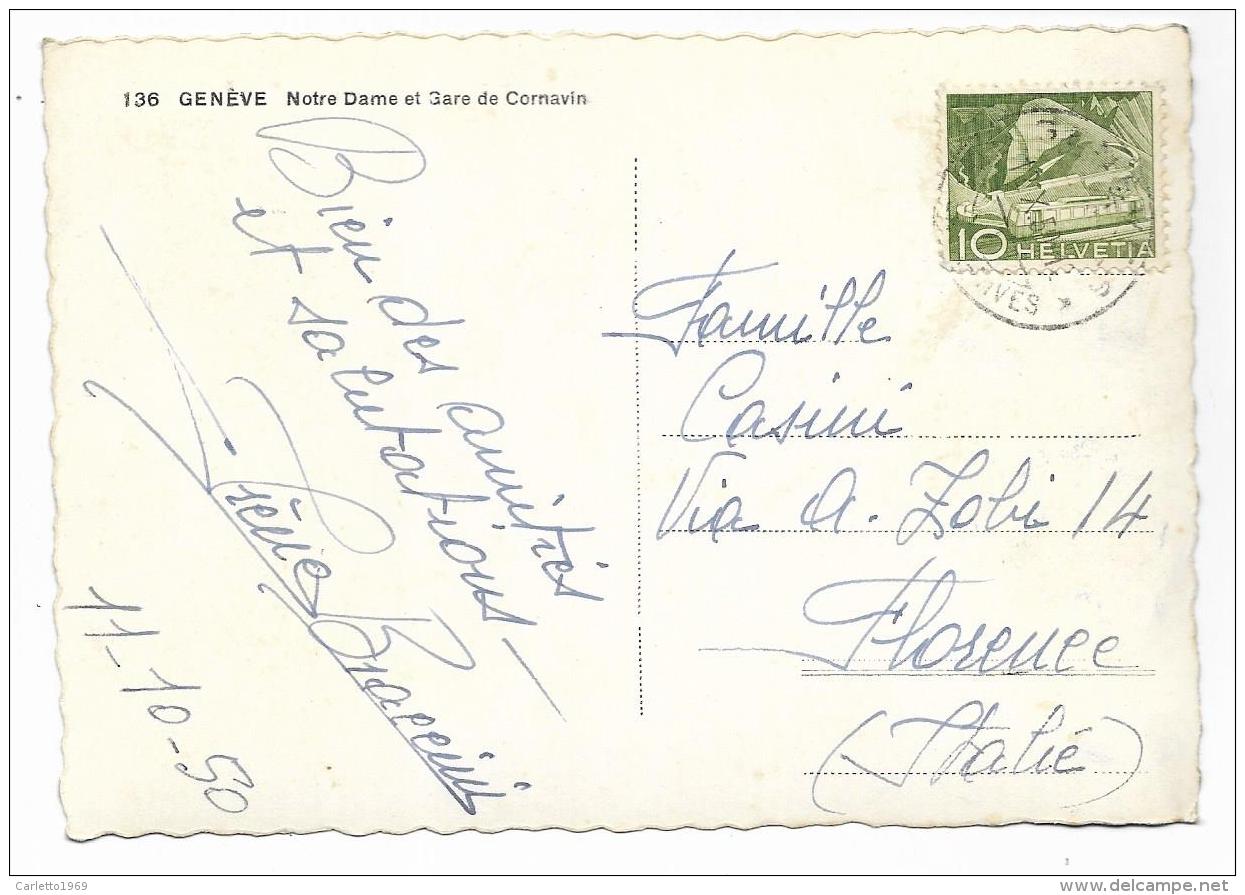 136 GENÈVE Notre Dame et Gare de Cornavin
10 HELVETIA
Bien des amitiés
et salutations -
11-10-50
Famille
Casini
Via A. Zobi 14
Florence
(Italie)
Carletto1969
delcampe.net